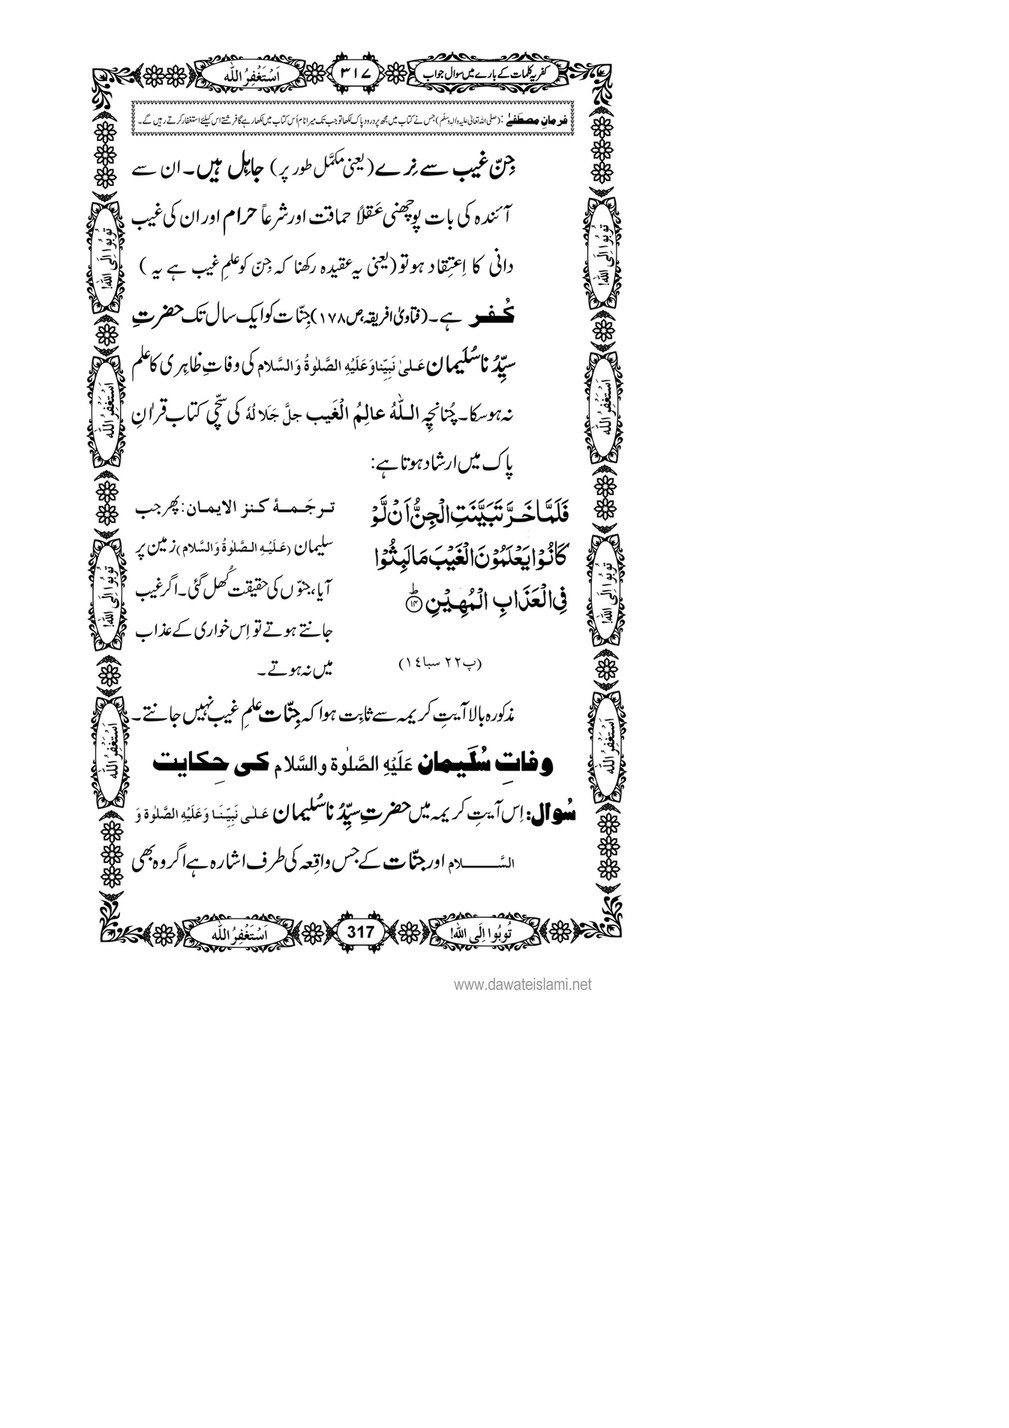 کفریہ کلمات کے بارے میں سوال جواب
۳۱۷
اَسْتَغْفِرُ اللّٰہ
فرمانِ مصطفےٰ : (صلی اللہ تعالیٰ علیہ والہ وسلم) جس نے کتاب میں مجھ پر درود پاک لکھا تو جب تک میرا نام اُس کتاب میں لکھا رہے گا فرشتے اس کیلئے استغفار کرتے رہیں گے۔
جِنّ غیب سے نِرے (یعنی مکمَّل طور پر) جاہِل ہیں۔ ان سے
آئندہ کی بات پوچھنی عَقلاً حماقت اور شرعاً حرام اور ان کی غیب
دانی کا اِعتِقاد ہو تو (یعنی یہ عقیدہ رکھنا کہ جِنّ کو علمِ غیب ہے یہ )
کُفر ہے۔ (فتاویٰ افریقہ ص ۱۷۸) جِنّات کو ایک سال تک حضرتِ
سیِّدُنا سُلَیمان عَلیٰ نَبِیِّنَا وَعَلَیْہِ الصَّلٰوۃُ وَالسَّلام کی وفاتِ ظاہِری کا علم
نہ ہو سکا۔ چُنانچِہ اللّٰہُ عالِمُ الْغَیب جلَّ جَلَالُہٗ کی سچّی کتاب قراٰنِ
پاک میں ارشاد ہوتا ہے:
فَلَمَّا خَرَّ تَبَیَّنَتِ الْجِنُّ اَنْ لَّوْ
کَانُوْا یَعْلَمُوْنَ الْغَیْبَ مَا لَبِثُوْا
فِی الْعَذَابِ الْمُهِیْنِ ؕ ۱۴
(پ۲۲ سبا ۱۴)
ترجَمۂ کنز الایمان: پھر جب
سلیمان (عَلَیْہِ الصَّلٰوۃُ وَالسَّلام) زمین پر
آیا، جنّوں کی حقیقت کُھل گئی۔ اگر غیب
جانتے ہوتے تو اِس خواری کے عذاب
میں نہ ہوتے۔
مذکورہ بالا آیتِ کریمہ سے ثابِت ہوا کہ جِنّات علمِ غیب نہیں جانتے۔
وفاتِ سُلَیمان عَلَیْہِ الصَّلٰوۃ والسَّلام کی حِکایت
سُوال: اِس آیتِ کریمہ میں حضرتِ سیِّدُنا سُلیمان عَلٰی نَبِیِّنَا وَعَلَیْہِ الصَّلٰوۃ وَ
السَّلام اور جنّات کے جس واقِعہ کی طرف اشارہ ہے اگر وہ بھی
تُوبُوا اِلَی اللّٰہ!
اَسْتَغْفِرُ اللّٰہ
تُوبُوا اِلَی اللّٰہ!
اَسْتَغْفِرُ اللّٰہ
تُوبُوا اِلَی اللّٰہ!
اَسْتَغْفِرُ اللّٰہ
تُوبُوا اِلَی اللّٰہ!
اَسْتَغْفِرُ اللّٰہ
تُوبُوا اِلَی اللّٰہ!
317
اَسْتَغْفِرُ اللّٰہ
www.dawateislami.net